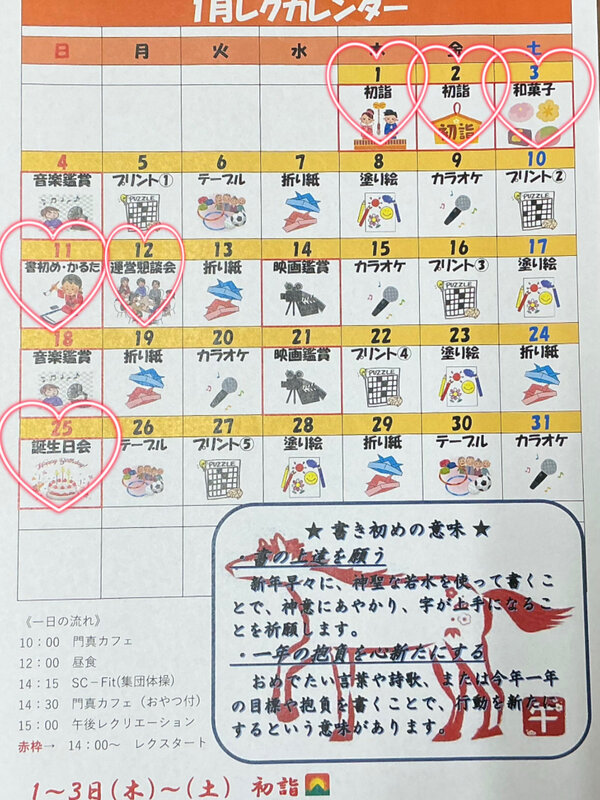 1月レクカレンダー
日 月 火 水 木 金 土
1 2 3
初詣 初詣 和菓子
初詣
4 5 6 7 8 9 10
音楽鑑賞 プリント① テーブル 折り紙 塗り絵 カラオケ プリント②
PUZZLE PUZZLE
11 12 13 14 15 16 17
書初め・かるた 運営懇談会 折り紙 映画鑑賞 カラオケ プリント③ 塗り絵
PUZZLE
18 19 20 21 22 23 24
音楽鑑賞 折り紙 カラオケ 映画鑑賞 プリント④ 塗り絵 折り紙
PUZZLE
25 26 27 28 29 30 31
誕生日会 テーブル プリント⑤ 塗り絵 折り紙 テーブル カラオケ
Happy Birthday!
PUZZLE
★ 書き初めの意味 ★
・書の上達を願う
新年早々に、神聖な若水を使って書くこ
とで、神意にあやかり、字が上手になるこ
とを祈願します。
・一年の抱負を心新たにする
おめでたい言葉や詩歌、または今年一年
の目標や抱負を書くことで、行動を新たに
するという意味があります。
午
《一日の流れ》
10：00 門真カフェ
12：00 昼食
14：15 SC－Fit(集団体操)
14：30 門真カフェ（おやつ付）
15：00 午後レクリエーション
赤枠→ 14：00～ レクスタート
1～3日(木)～(土) 初詣